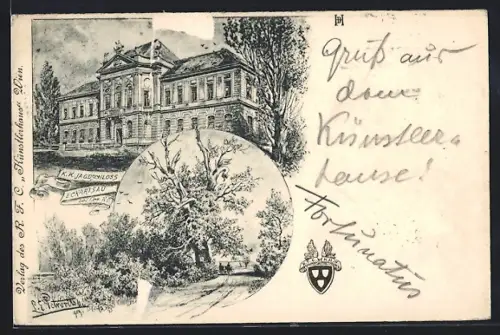 Verlag des R. F. C. „Künstlerhaus" Wien.
K.K. JAGDSCHLOSS
ECKARTSAU
Gruß aus
dem
Künstler=
hause!
Fortunatus